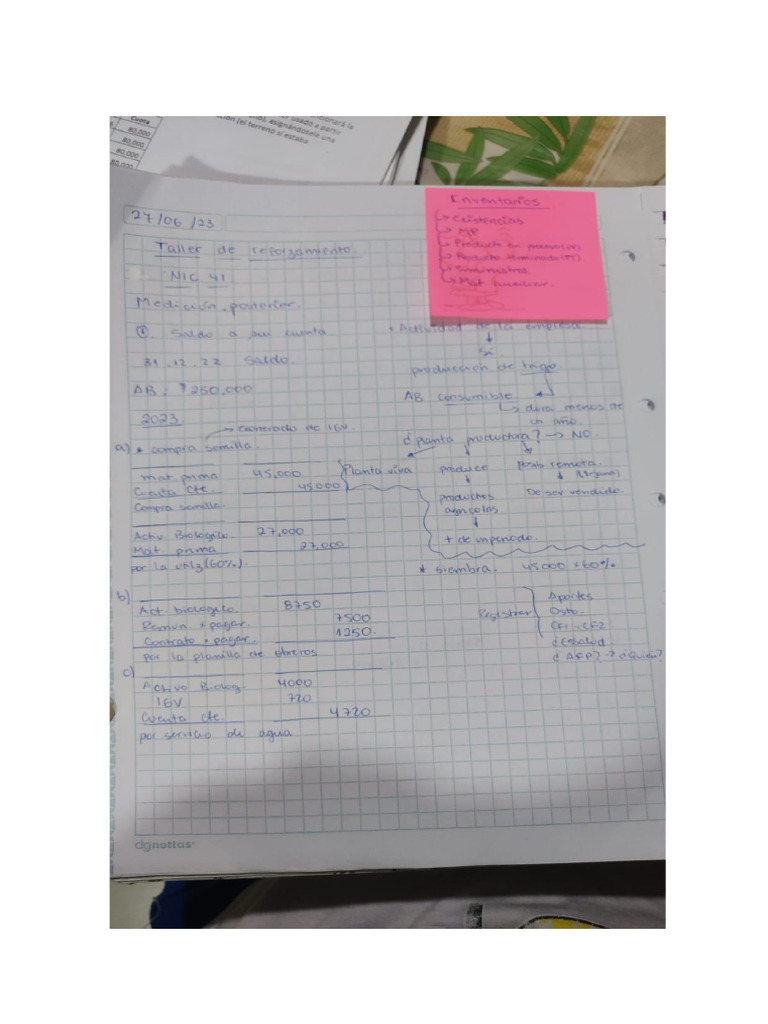 Cuota
80,000
80,000
80,000
80,000
usado a partir
asignándosele una
(el terreno si estaba
27/06/23
Taller de reforzamiento.
NIC 41
Medición posterior.
①. Saldo a su cuenta
31.12.22 Saldo.
AB: $250,000
2023
→ exonerado de IGV.
a) * compra semilla.
Mat. prima 45,000
Cuenta Cte. 45000
Compra semilla.
Activ Biologico. 27,000
Mat. prima 27,000
por la utiliz (60%).
b)
Act. biológico. 8750
Remun x pagar. 7500
Contrato x pagar. 1250.
Por la planilla de obreros
c)
Activo Biolog. 4000
IGV 720
Cuenta Cte. 4720
por servicio de agua
Inventarios
→ Existencias
→ MP
→ Producto en proceso (PP)
→ Producto terminado (PT)
→ Suministros
→ Mat auxiliar.
* Actividad de la empresa
Si
producción de trigo
AB consumible
→ dura menos de
un año.
¿Planta productora? → NO.
Planta viva
produce
productos
agrícolas
+ de un periodo.
remota.
De ser vendido
* siembra. 45000 x 60%
Registrar
Aportes
Dsto.
¿Essalud
¿AFP? → ¿Quién?
dgnottas